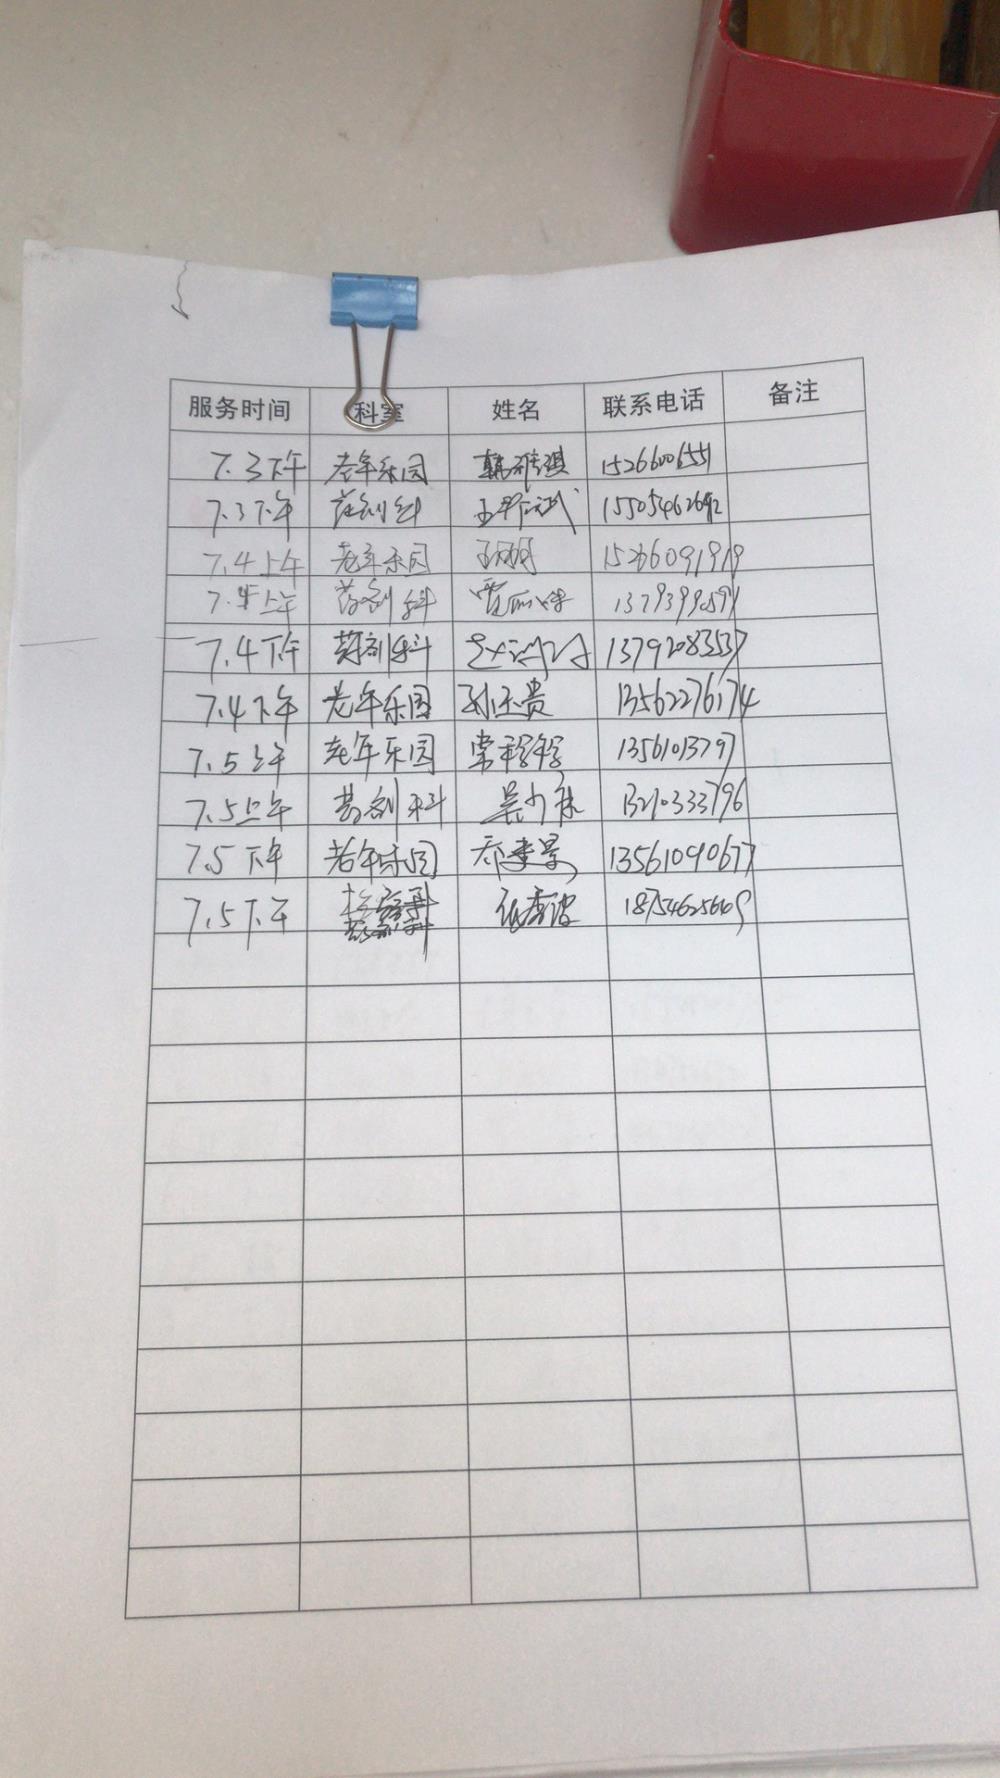 服务时间 科室 姓名 联系电话 备注
7.3下午 老年乐园 15266006551
7.3下午 药剂科 15505462692
7.4上午 老年乐园 15266091919
7.4上午 药剂科
7.4下午 药剂科 13792083537
7.4下午 老年乐园 孙玉贵 13562276174
7.5上午 老年乐园 13561013797
7.5上午 药剂科 吴少林 13210333796
7.5下午 老年乐园 乔建景 13561090677
7.5下午 张秀波 18754625649